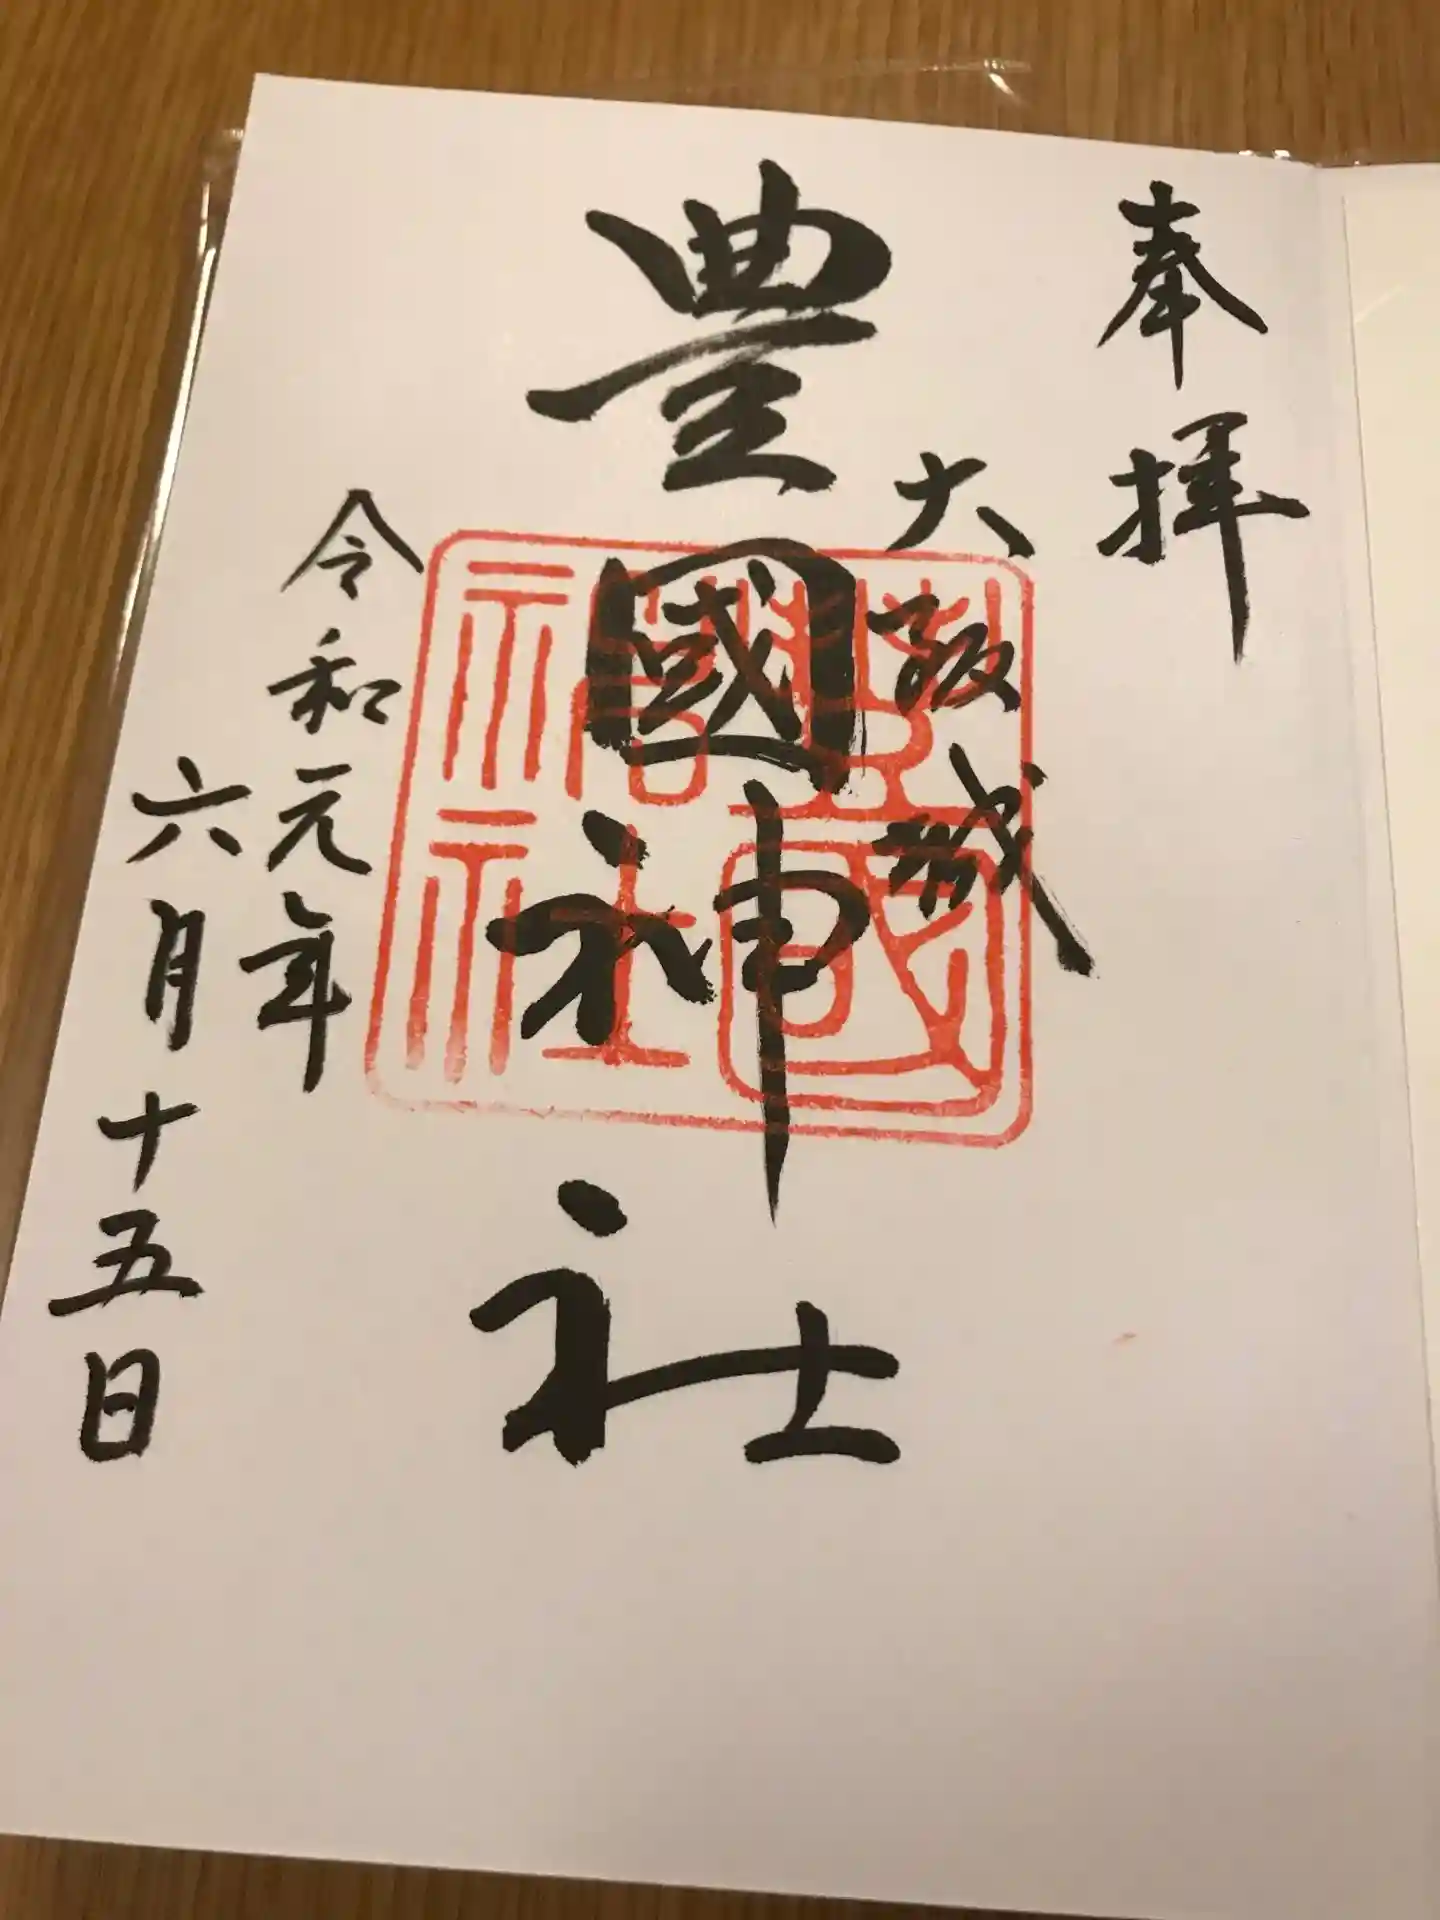 奉拝
大阪城
豊國神社
令和元年
六月十五日
豊國神社